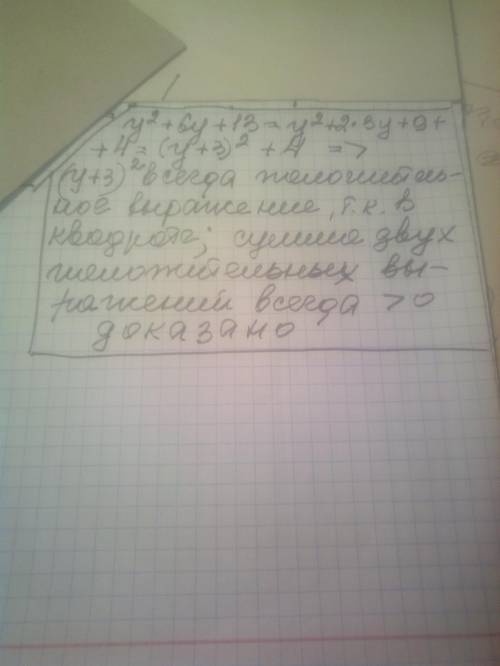 y²+6y+13 = y²+2·3y+9+
+4 = (y+3)² + 4 =>
(y+3)² всегда положитель-
ное выражение, т.к. в
квадрате; сумма двух
положительных вы-
ражений всегда >0
доказано